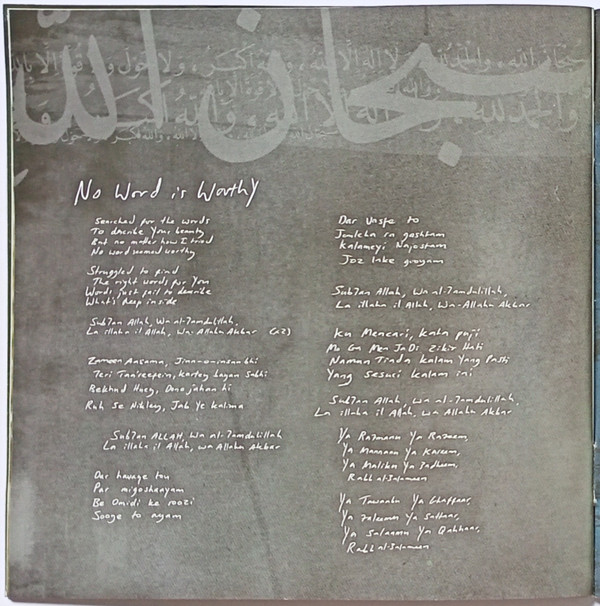 سبحان الله
No Word is Worthy
Searched for the words
To describe Your beauty
But no matter how I tried
No word seemed worthy
Struggled to find
The right words for You
Words just fail to describe
What's deep inside
Sub7an Allah, Wa al-7amdulillah,
La illaha il Allah, Wa-Allahu Akbar (x2)
Zameen Aasama, Jinn-o-insan bhi
Teri Taareefein, kartay bayan sabhi
Bekhud Huey, Dono jahan bhi
Ruh se Nikley, Jab Ye kalima
Sub7an ALLAH, Wa al-7amdulillah
La illaha il Allah, wa Allahu Akbar
Dar havaye tou
Par migoshaayam
Be Omidi ke roozi
Sooye to ayam
Dar Vasfe to
Jomleha ra gashtam
Kalameyi Najostam
Joz labe gooyam
Sub7an Allah, Wa al-7amdulillah,
La illaha il Allah, Wa-Allahu Akbar
Ku Mencari, kata puji
Mu Ga Men JaDi Zikir Hati
Namun Tiada kalam Yang Pasti
Yang Sesuai kalam ini
Sub7an Allah, wa al-7amdulillah,
La illaha il Allah, wa Allahu Akbar
Ya Ra7manu Ya Ra7eem,
Ya Mannanu Ya Kareem,
Ya Maliku Ya 7adheem,
Rabb al-3alameen
Ya Tawaabu Ya Ghaffaar,
Ya 7aleemu Ya Sattaar,
Ya Salaamu Ya Qahhaar,
Rabb al-3alameen